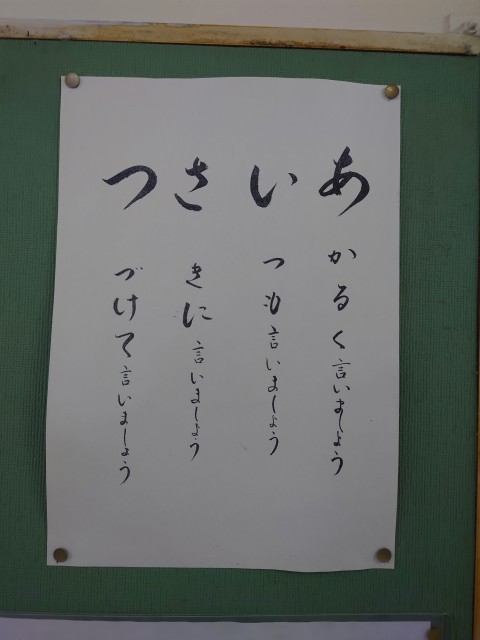 あかるく言いましょう
いつも言いましょう
さきに言いましょう
つづけて言いましょう